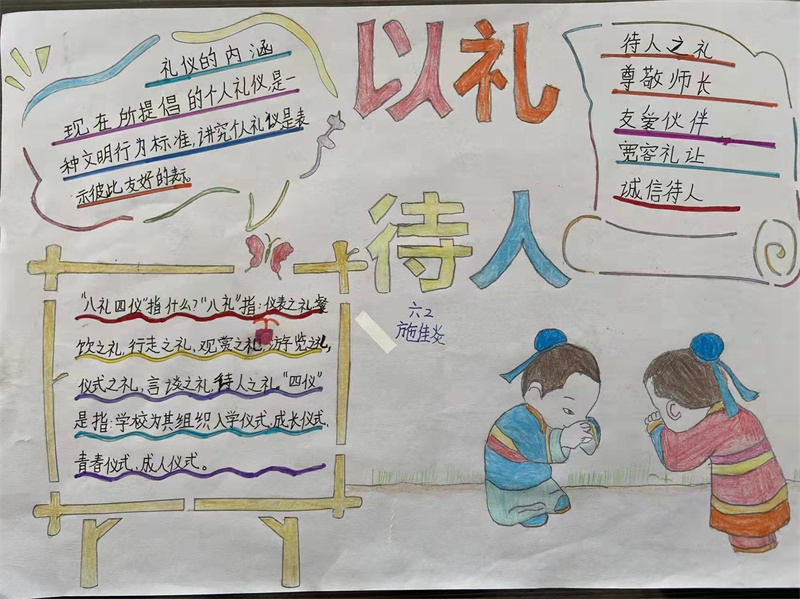 礼仪的内涵
现在所提倡的个人礼仪,是一
种文明行为标准,讲究个人礼仪是表
示彼此友好的表示。
以礼
待人
待人之礼
尊敬师长
友爱伙伴
宽容礼让
诚信待人
六2
施佳炎
“八礼四仪”指什么?“八礼”指:仪表之礼,餐
饮之礼,行走之礼,观赏之礼,游览之礼,
仪式之礼,言谈之礼,待人之礼,“四仪”
是指:学校为其组织入学仪式,成长仪式,
青春仪式,成人仪式。